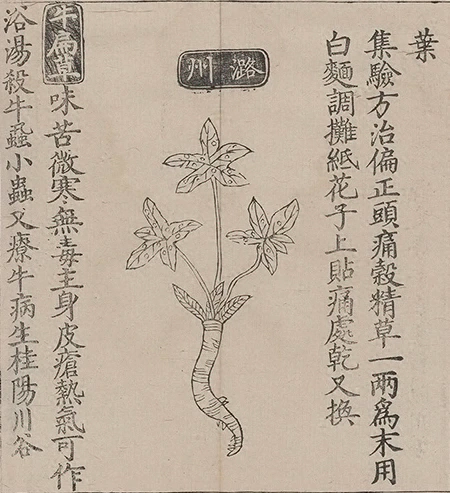 葉
集驗方治偏正頭痛穀精草一兩爲末用
白麵調攤紙花子上貼痛處乾又換
潞州
牛扁味苦微寒無毒主身皮瘡熱氣可作
浴湯殺牛蝨小蟲又療牛病生桂陽川谷